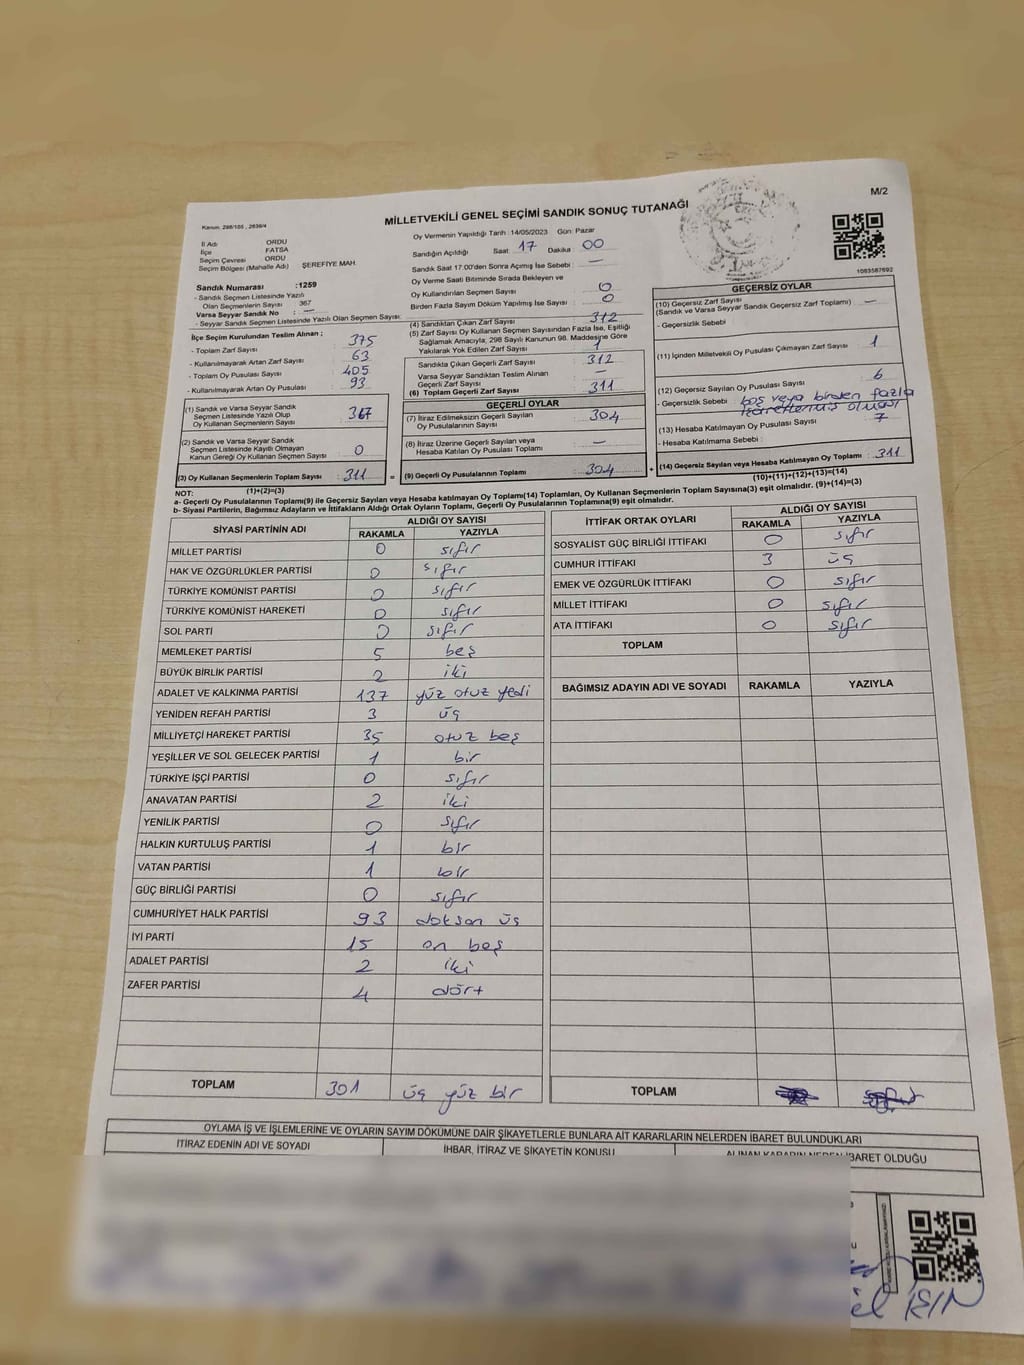 M/2
MİLLETVEKİLİ GENEL SEÇİMİ SANDIK SONUÇ TUTANAĞI
Kanun: 298/105 , 2839/4
Oy Vermenin Yapıldığı Tarih : 14/05/2023 Gün: Pazar
İl Adı ORDU
İlçe FATSA
Seçim Çevresi ORDU
Seçim Bölgesi (Mahalle Adı) ŞEREFİYE MAH.
Sandık Numarası :1259
- Sandık Seçmen Listesinde Yazılı
Olan Seçmenlerin Sayısı 367
Varsa Seyyar Sandık No : —
- Seyyar Sandık Seçmen Listesinde Yazılı Olan Seçmen Sayısı:
İlçe Seçim Kurulundan Teslim Alınan :
- Toplam Zarf Sayısı 375
- Kullanılmayarak Artan Zarf Sayısı 63
- Toplam Oy Pusulası Sayısı 405
- Kullanılmayarak Artan Oy Pusulası 93
(1) Sandık ve Varsa Seyyar Sandık
Seçmen Listesinde Yazılı Olup
Oy Kullanan Seçmenlerin Sayısı 367
(2) Sandık ve Varsa Seyyar Sandık
Seçmen Listesinde Kayıtlı Olmayan
Kanun Gereği Oy Kullanan Seçmen Sayısı 0
(3) Oy Kullanan Seçmenlerin Toplam Sayısı : 311
(1)+(2)=(3)
Sandığın Açıldığı Saat 17 Dakika 00
Sandık Saat 17.00'den Sonra Açımış İse Sebebi : —
Oy Verme Saati Bitiminde Sırada Bekleyen ve
Oy Kullandırılan Seçmen Sayısı 0
Birden Fazla Sayım Döküm Yapılmış İse Sayısı 0
(4) Sandıktan Çıkan Zarf Sayısı 312
(5) Zarf Sayısı Oy Kullanan Seçmen Sayısından Fazla İse, Eşitliği
Sağlamak Amacıyla; 298 Sayılı Kanunun 98. Maddesine Göre
Yakılarak Yok Edilen Zarf Sayısı 1
Sandıkta Çıkan Geçerli Zarf Sayısı 312
Varsa Seyyar Sandıktan Teslim Alınan
Geçerli Zarf Sayısı —
(6) Toplam Geçerli Zarf Sayısı 311
GEÇERLİ OYLAR
(7) İtiraz Edilmeksizin Geçerli Sayılan
Oy Pusulasının Sayısı 304
(8) İtiraz Üzerine Geçerli Sayılan veya
Hesaba Katılan Oy Pusulası Toplamı —
= (9) Geçerli Oy Pusulalarının Toplamı 304
1083587692
GEÇERSİZ OYLAR
(10) Geçersiz Zarf Sayısı
(Sandık ve Varsa Seyyar Sandık Geçersiz Zarf Toplamı) —
- Geçersizlik Sebebi
(11) İçinden Milletvekili Oy Pusulası Çıkmayan Zarf Sayısı 1
(12) Geçersiz Sayılan Oy Pusulası Sayısı 6
- Geçersizlik Sebebi : boş veya birden fazla
işaretlenmiş olması
(13) Hesaba Katılmayan Oy Pusulası Sayısı 7
- Hesaba Katılmama Sebebi :
+ (14) Geçersiz Sayılan veya Hesaba Katılmayan Oy Toplamı : 311
(10)+(11)+(12)+(13)=(14)
NOT:
a- Geçerli Oy Pusulalarının Toplamı(9) ile Geçersiz Sayılan veya Hesaba katılmayan Oy Toplamı(14) Toplamları, Oy Kullanan Seçmenlerin Toplam Sayısına(3) eşit olmalıdır. (9)+(14)=(3)
b- Siyasi Partilerin, Bağımsız Adayların ve İttifakların Aldığı Ortak Oyların Toplamı, Geçerli Oy Pusulalarının Toplamına(9) eşit olmalıdır.
SİYASİ PARTİNİN ADI ALDIĞI OY SAYISI
RAKAMLA YAZIYLA
MİLLET PARTİSİ 0 sıfır
HAK VE ÖZGÜRLÜKLER PARTİSİ 0 sıfır
TÜRKİYE KOMÜNİST PARTİSİ 0 sıfır
TÜRKİYE KOMÜNİST HAREKETİ 0 sıfır
SOL PARTİ 0 sıfır
MEMLEKET PARTİSİ 5 beş
BÜYÜK BİRLİK PARTİSİ 2 iki
ADALET VE KALKINMA PARTİSİ 137 yüz otuz yedi
YENİDEN REFAH PARTİSİ 3 üç
MİLLİYETÇİ HAREKET PARTİSİ 35 otuz beş
YEŞİLLER VE SOL GELECEK PARTİSİ 1 bir
TÜRKİYE İŞÇİ PARTİSİ 0 sıfır
ANAVATAN PARTİSİ 2 iki
YENİLİK PARTİSİ 0 sıfır
HALKIN KURTULUŞ PARTİSİ 1 bir
VATAN PARTİSİ 1 bir
GÜÇ BİRLİĞİ PARTİSİ 0 sıfır
CUMHURİYET HALK PARTİSİ 93 doksan üç
İYİ PARTİ 15 on beş
ADALET PARTİSİ 2 iki
ZAFER PARTİSİ 4 dört
TOPLAM 301 üç yüz bir
İTTİFAK ORTAK OYLARI ALDIĞI OY SAYISI
RAKAMLA YAZIYLA
SOSYALİST GÜÇ BİRLİĞİ İTTİFAKI 0 sıfır
CUMHUR İTTİFAKI 3 üç
EMEK VE ÖZGÜRLÜK İTTİFAKI 0 sıfır
MİLLET İTTİFAKI 0 sıfır
ATA İTTİFAKI 0 sıfır
TOPLAM
BAĞIMSIZ ADAYIN ADI VE SOYADI RAKAMLA YAZIYLA
TOPLAM
OYLAMA İŞ VE İŞLEMLERİNE VE OYLARIN SAYIM DÖKÜMÜNE DAİR ŞİKAYETLERLE BUNLARA AİT KARARLARIN NELERDEN İBARET BULUNDUKLARI
İTİRAZ EDENİN ADI VE SOYADI İHBAR, İTİRAZ VE ŞİKAYETİN KONUSU ALINAN KARARIN NEDEN İBARET OLDUĞU